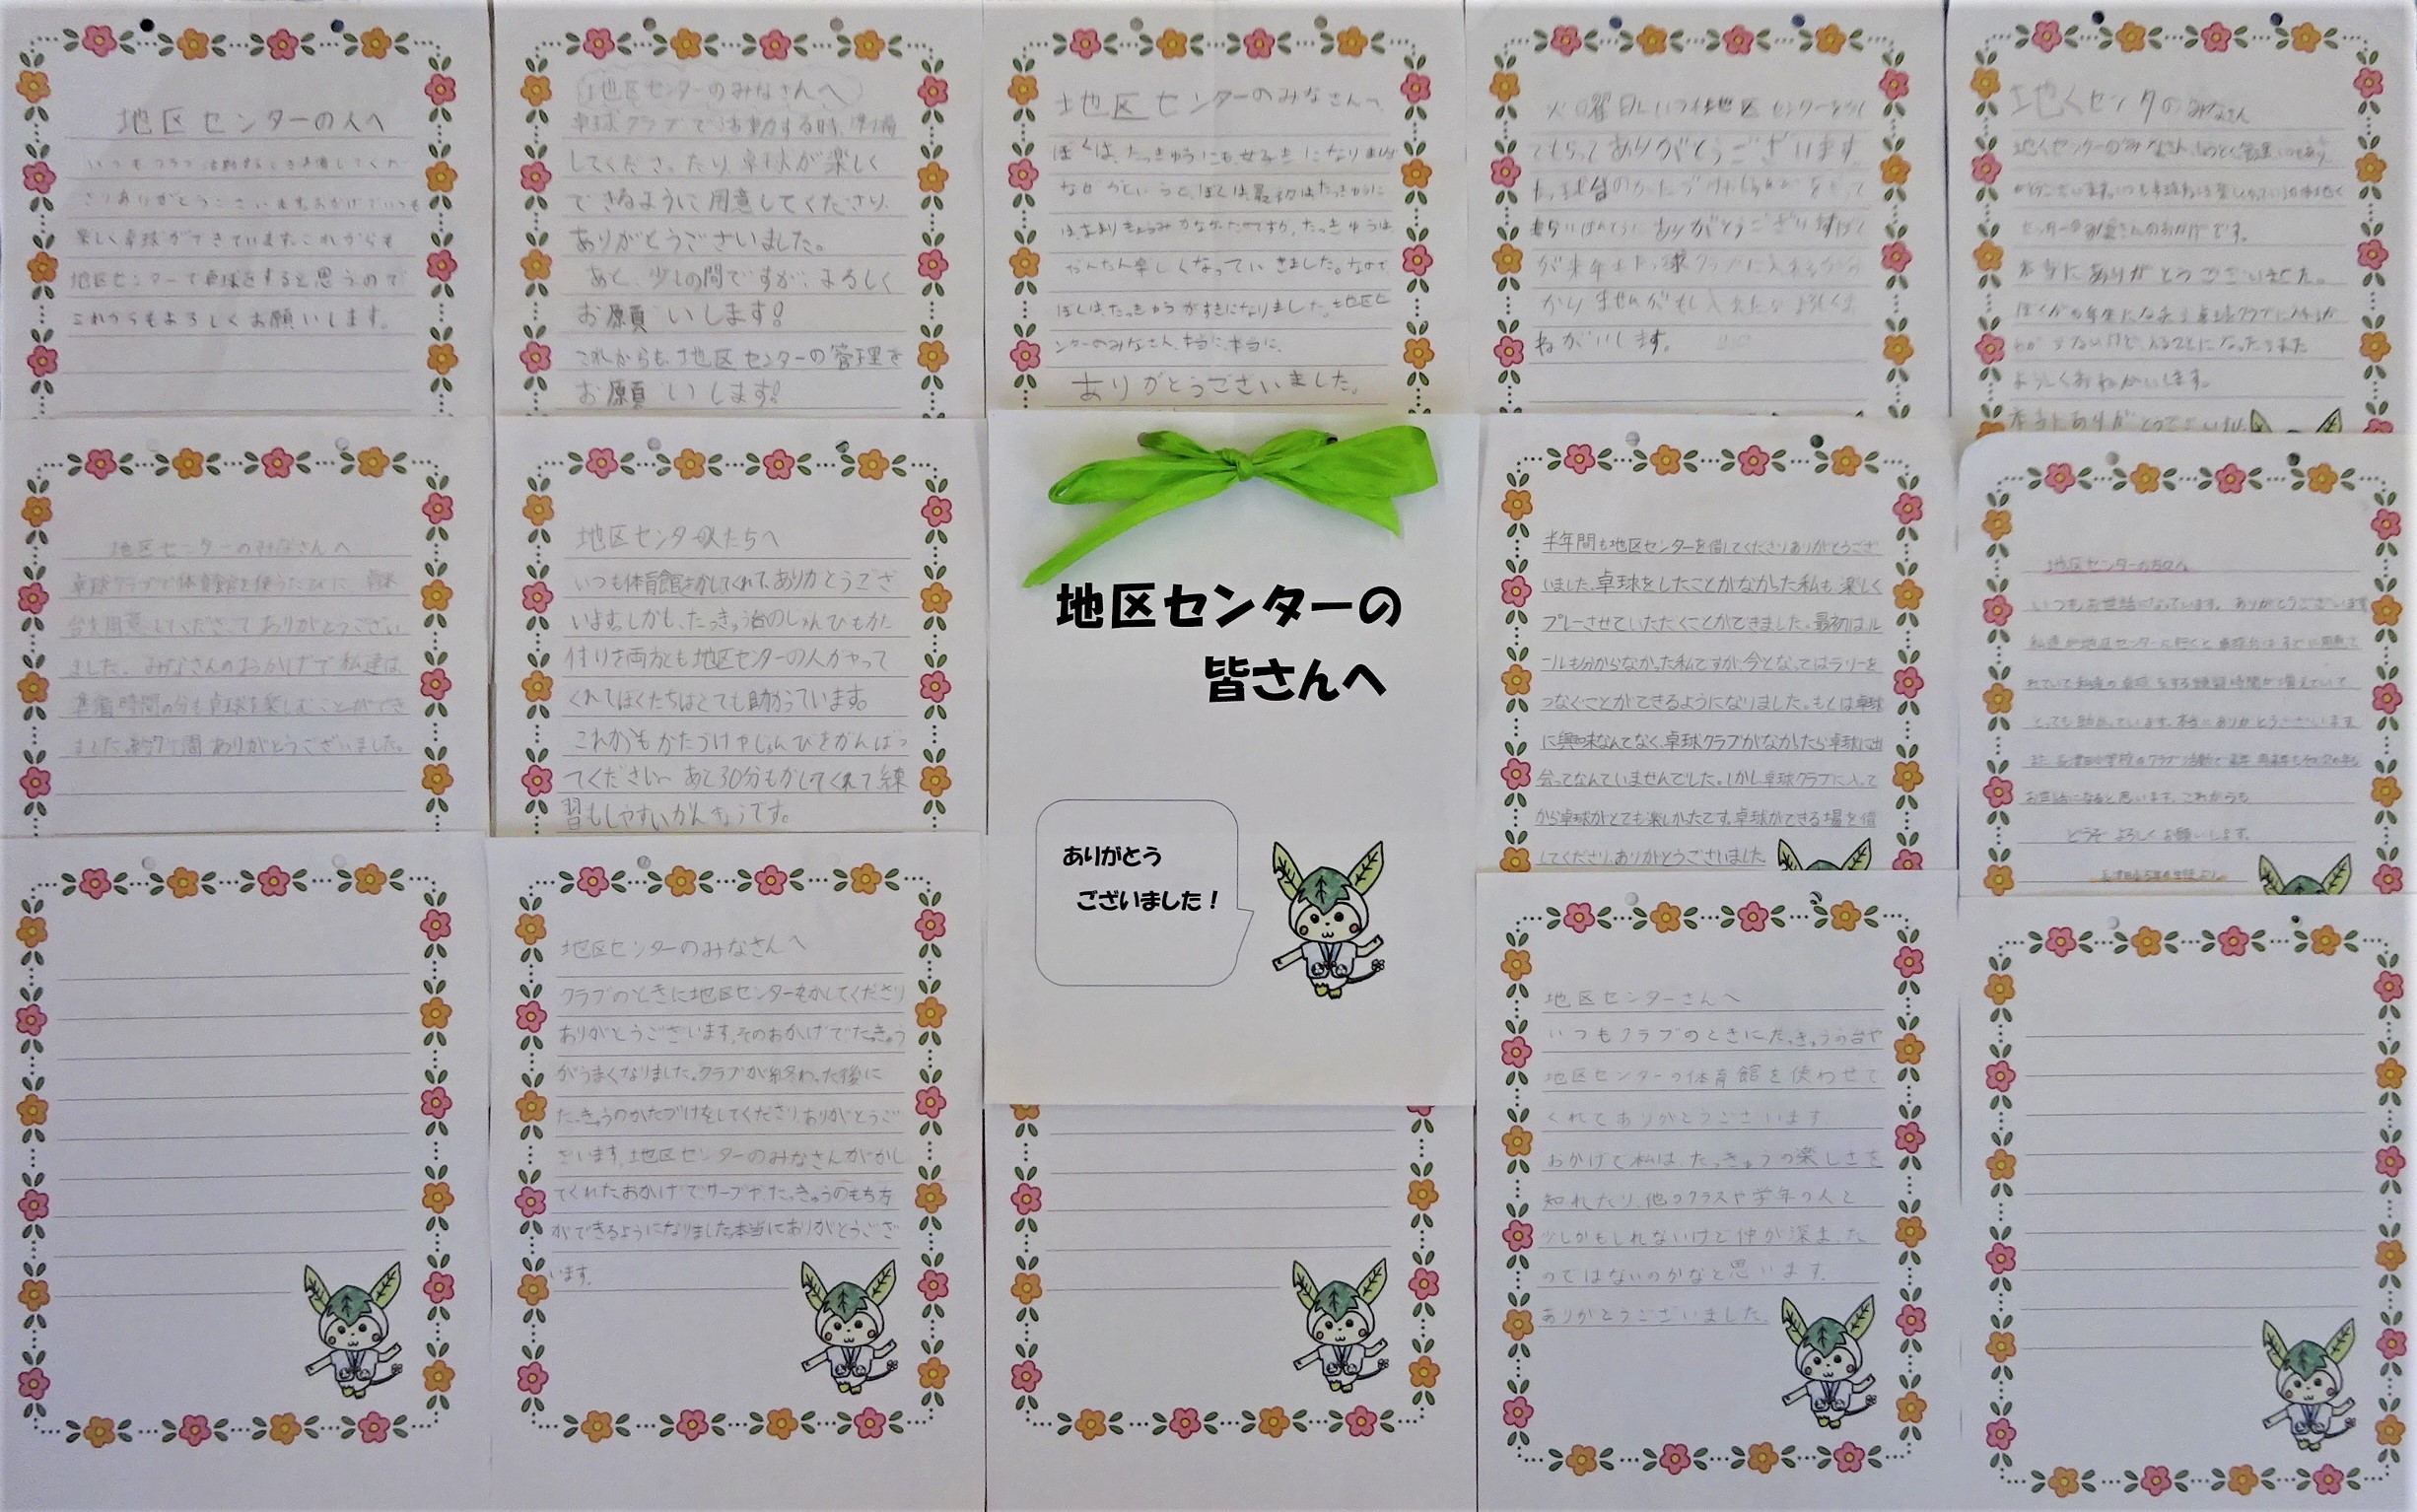 地区センターの人へ
いつもクラブ活動するとき準備してくだ
さりありがとうございます。おかげでいつも
楽しく卓球ができています。これからも
地区センターで卓球をすると思うので
これからもよろしくお願いします。
地区センターのみなさんへ
卓球クラブで活動する時、準備
してくださったり、卓球が楽しく
できるように用意してくださり、
ありがとうございました。
あと、少しの間ですが、よろしく
お願いします!
これからも、地区センターの管理を
お願いします!
地区センターのみなさんへ
ぼくは、たっきゅうにも女子きになりました
なぜかというと、ぼくは、最初はたっきゅうに
はあまりきょうみがなかったのですが、たっきゅうは
だんだん楽しくなっていきました。なので
ぼくは、たっきゅうがすきになりました。地区セ
ンターのみなさん、本当に、本当に、
ありがとうございました。
火曜日にいつも地区センターを
てもらってありがとうございます。
ありがとうございます
が来年もたっ球クラブに入れるか分
かりませんがもし入れたらよろしくお
ねがいします。
地くセンタのみなさん
地くセンターのみなさん
センターの皆さんのおかげです。
本当にありがとうございました。
ぼくが6年生になって卓球クラブに入れるか
わからないけど、入ることになったらまた
よろしくおねがいします。
本当にありがとうございました
地区センターのみなさんへ
卓球クラブで体育館を使うたびに、卓球
台を用意してくださってありがとうござい
ました。みなさんのおかげで私達は
準備時間の分も卓球を楽しむことができ
ました。 間ありがとうございました。
地区センターの人たちへ
いつも体育館をかしてくれて、ありがとうござ
います。しかも、たっきゅう台のじゅんびもかた
付けも両方とも地区センターの人がやって
くれてぼくたちはとても助かっています。
これからもかたづけやじゅんびをがんばっ
てください。あと30分もかしてくれて練
習もしやすいかんきょうです。
地区センターの
皆さんへ
ありがとう
ございました!
半年間も地区センターを借してくださりありがとうござ
いました。卓球をしたことがなかった私も、楽しく
プレーさせていただくことができました。最初はル
ールも分からなかった私ですが、今となってはラリーを
つなぐことができるようになりました。もとは卓球
に興味なんてなく、卓球クラブがなかったら卓球に出
会ってなんていませんでした。しかし卓球クラブに入って
から卓球がとても楽しかったです。卓球ができる場を借
してくださり、ありがとうございました。
地区センターの方々へ
いつもお世話になっています。ありがとうございます。
私達が地区センターに行くと卓球台はすでに用意さ
れていて私達の卓球をする練習時間が増えていて
とっても助かっています。本当にありがとうございます
また、長津田小学校のクラブ活動で来年、再来年もその次の年も
お世話になると思います。これからも
どうぞよろしくお願いします。
地区センターのみなさんへ
クラブのときに地区センターをかしてくださり
ありがとうございます。そのおかげでたっきゅう
がうまくなりました。クラブが終わった後に
たっきゅうのかたづけをしてくださりありがとうご
ざいます。地区センターのみなさんがかし
てくれたおかげでサーブや、たっきゅうのもち方
ができるようになりました。本当にありがとうござ
います。
地区センターさんへ
いつもクラブのときにたっきゅうの台や
地区センターの体育館を使わせて
くれてありがとうございます。
おかげで私は、たっきゅうの楽しさを
知れたり、他のクラスや学年の人と
少しかもしれないけど仲が深まった
のではないのかなと思います。
ありがとうございました。